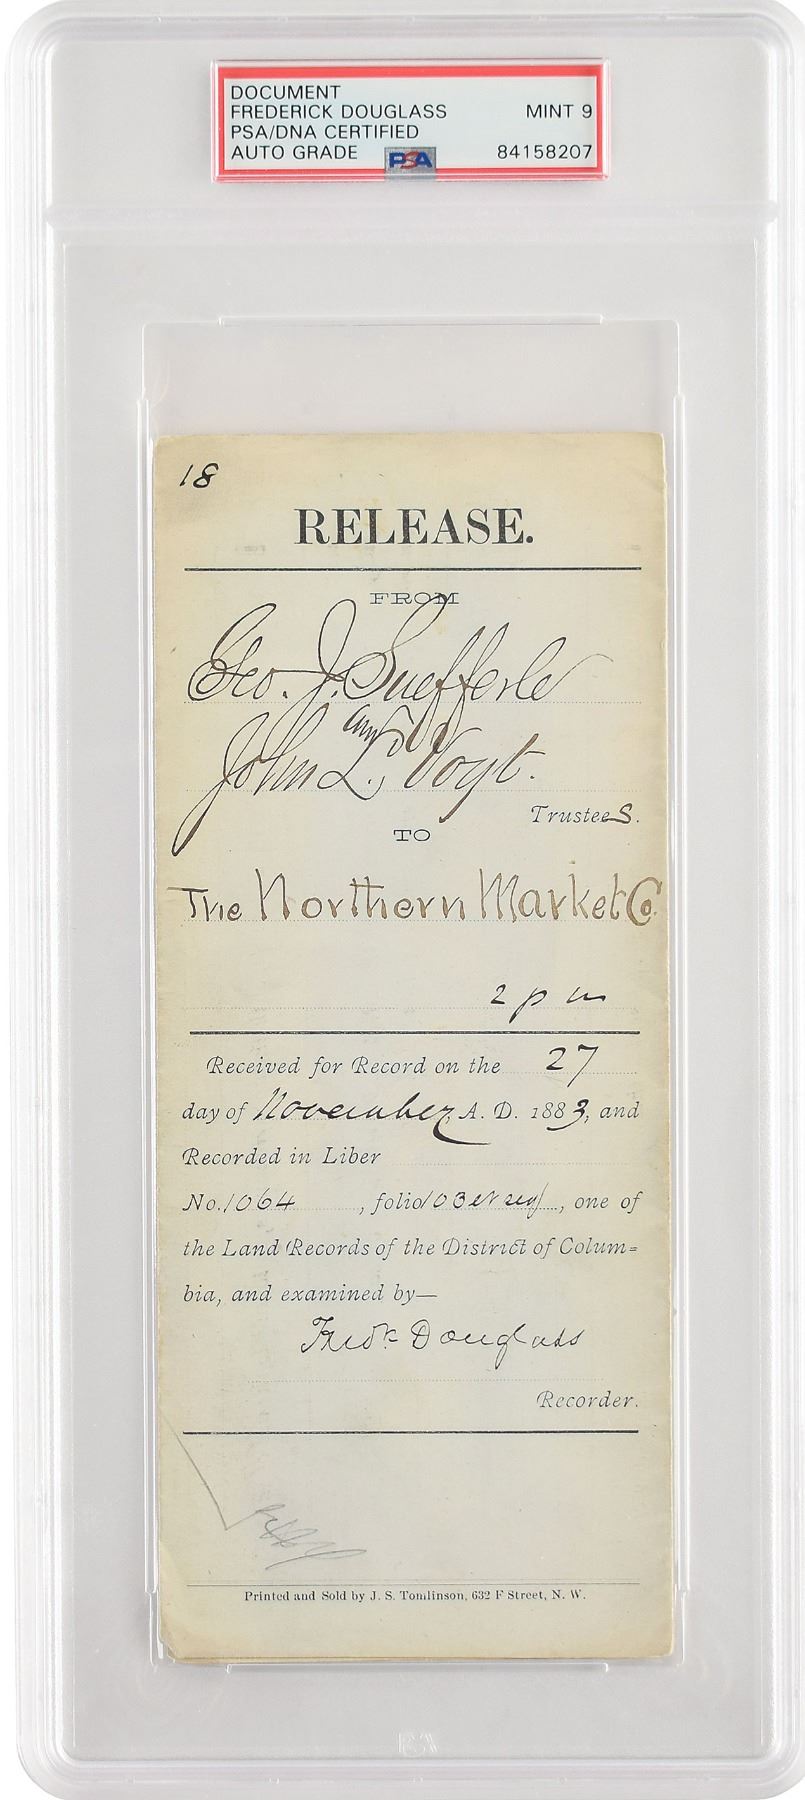 DOCUMENT
FREDERICK DOUGLASS MINT 9
PSA/DNA CERTIFIED
AUTO GRADE PSA 84158207
18
RELEASE.
FROM
Geo. J. Suefferle
and
John L. Vogt.
Trustees.
TO
The Northern Market Co.
2 p m
Received for Record on the 27
day of November, A. D. 1883, and
Recorded in Liber
No. 1064, folio 103 et seq, one of
the Land Records of the District of Colum=
bia, and examined by—
Fredk Douglass
Recorder.
Printed and Sold by J. S. Tomlinson, 632 F Street, N. W.